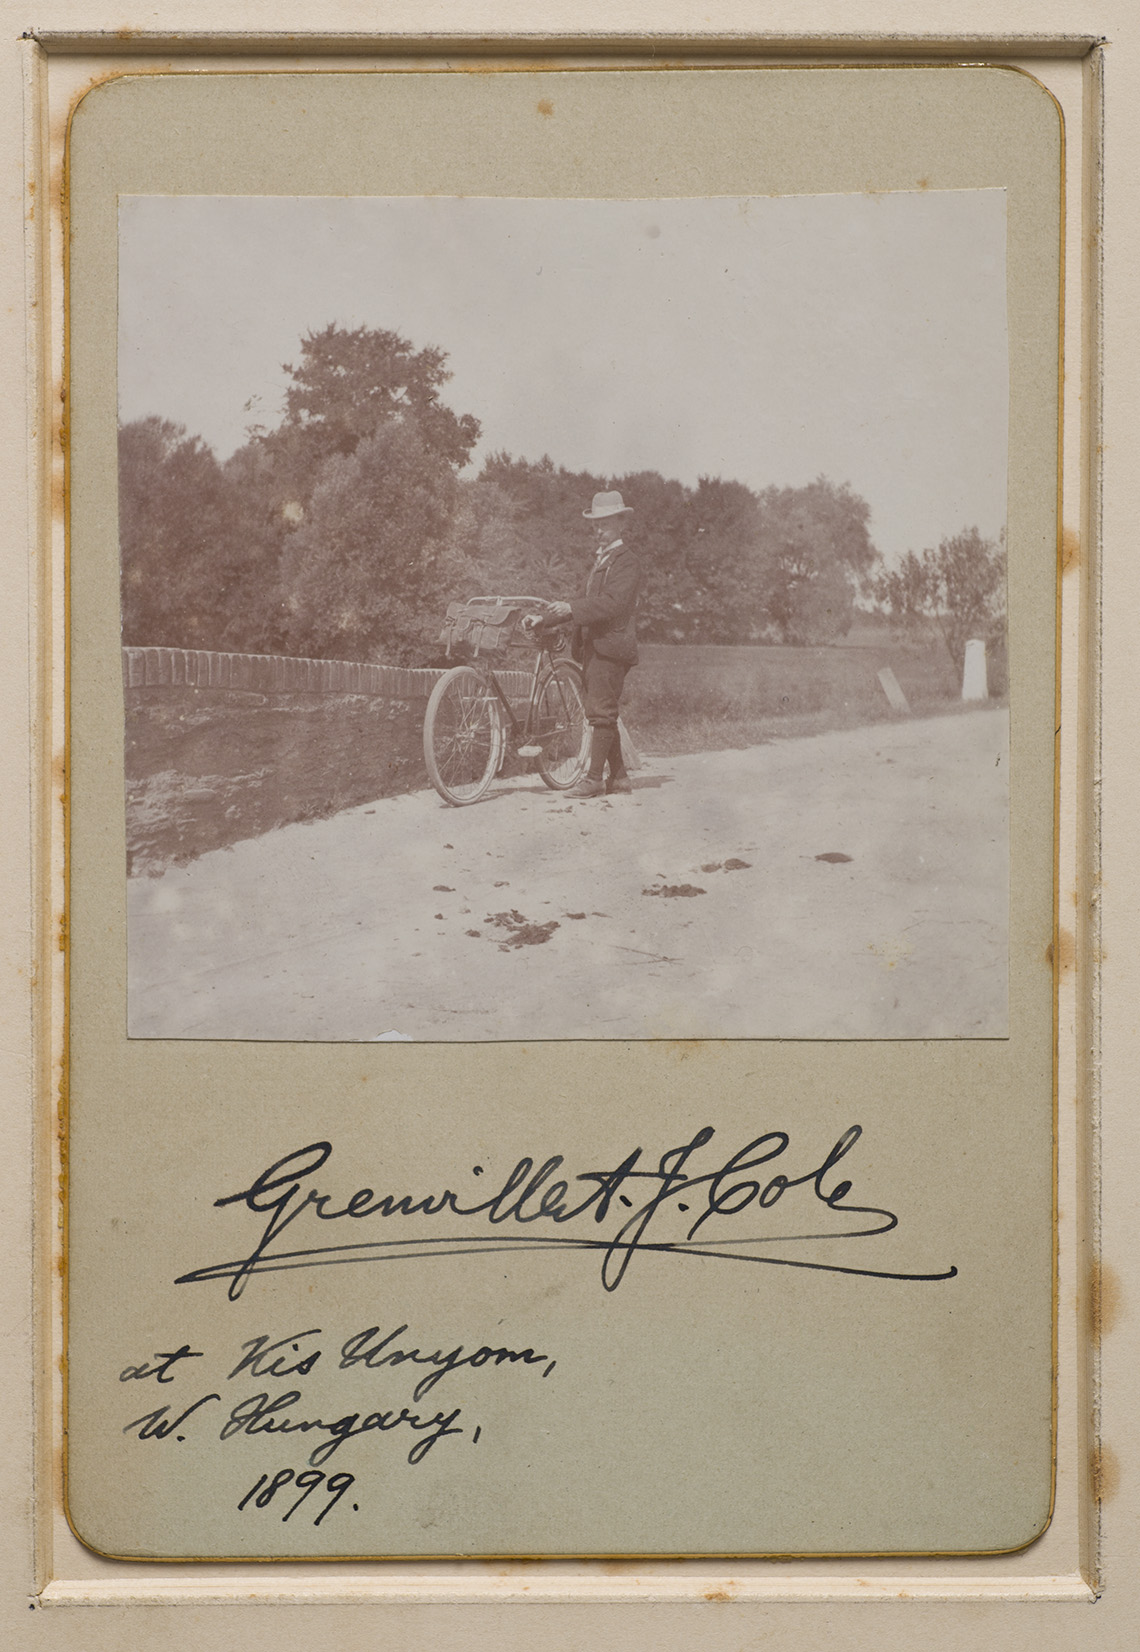 Grenville A. J. Cole
at Kis Unyom,
W. Hungary,
1899.